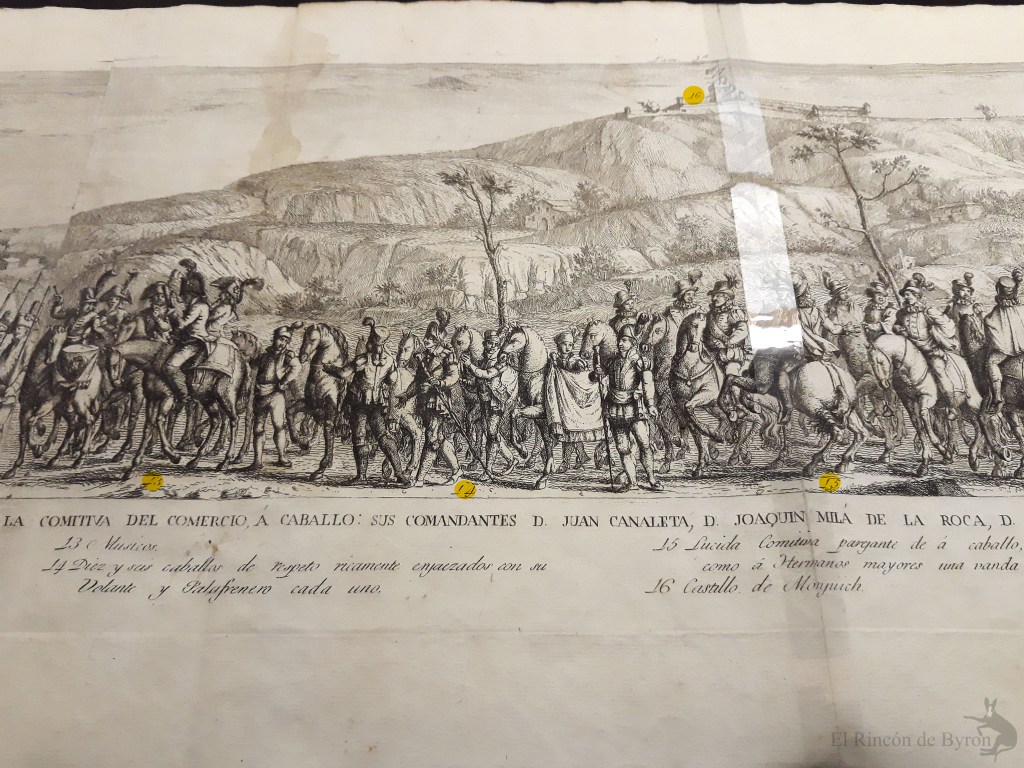 16
13
14
15
LA COMITIVA DEL COMERCIO, A CABALLO: SUS COMANDANTES D. JUAN CANALETA, D. JOAQUIN MILÁ DE LA ROCA, D.
13 Musicos.
14 Diez y seis caballos de respeto ricamente enjaezados con su
Volante y Palafrenero cada uno.
15 Lucida Comitiva pareante de á caballo,
como á Hermanos mayores una vanda
16 Castillo de Monjuich.
El Rincón de Byron